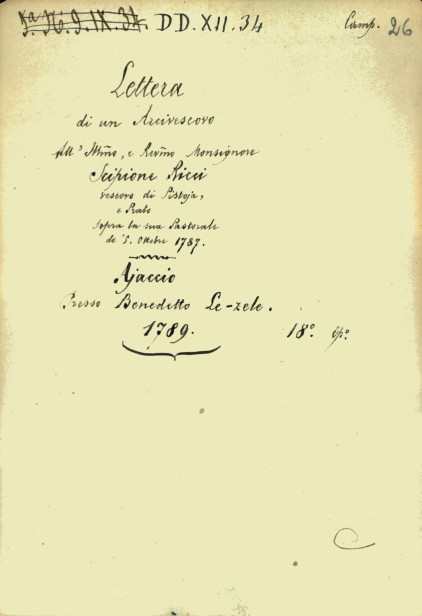 DD.XII.34 Camp. 26
Lettera
di un Arcivescovo
All' Illmo, e Revmo Monsignore
Scipione Ricci
vescovo di Pistoja,
e Prato
sopra la sua Pastorale
de' 5. Ottobre 1787.
Ajaccio
Presso Benedetto Le-zele.
1789. 18º. opº.